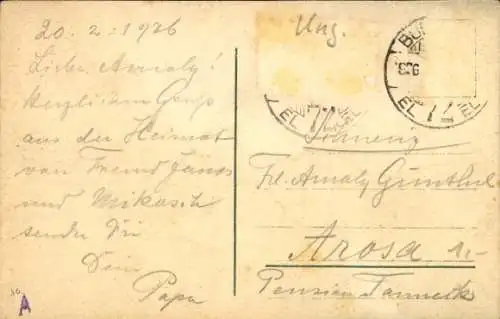 20. 2. 1926
Liebe Amaly!
herzlichen Gruß
aus der Heimat
von Freund Janos
und Mikosch
sendet Dir
Dein
Papa
Ung.
BU
EL
EL
Frl. Amaly Günthel
Arosa
Pension Tanneck
A